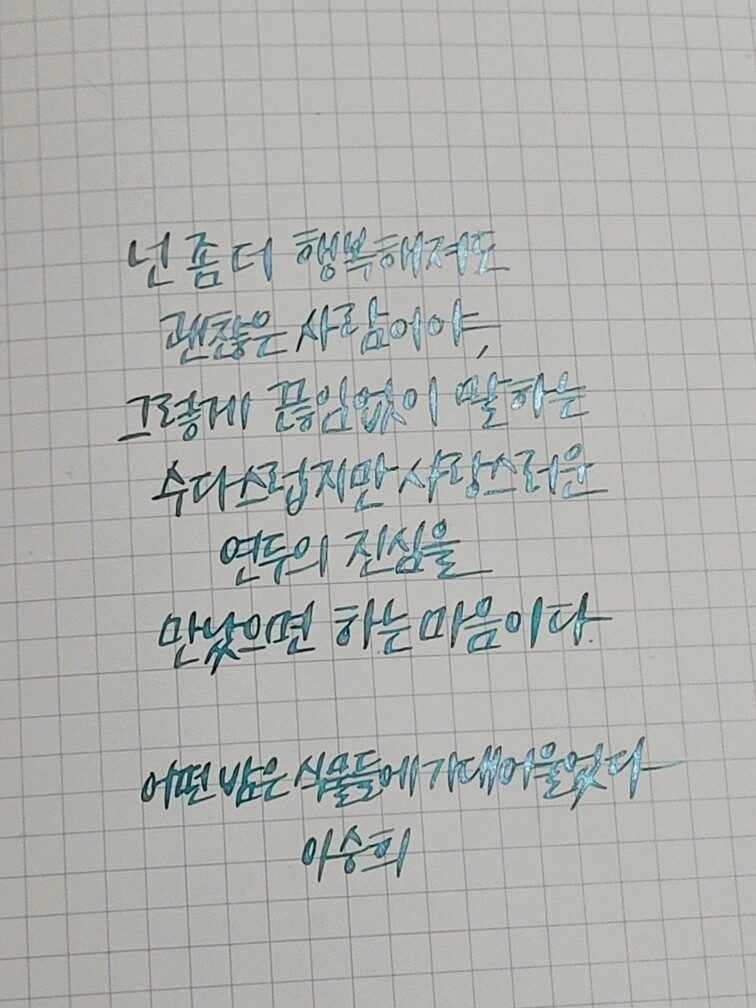 넌 좀 더 행복해져도
괜찮은 사람이야,
그렇게 끊임없이 말하는
수다스럽지만 사랑스러운
연두의 진심을
만났으면 하는 마음이다.
어떤 밤은 식물들에 기대어 울었다
이승희